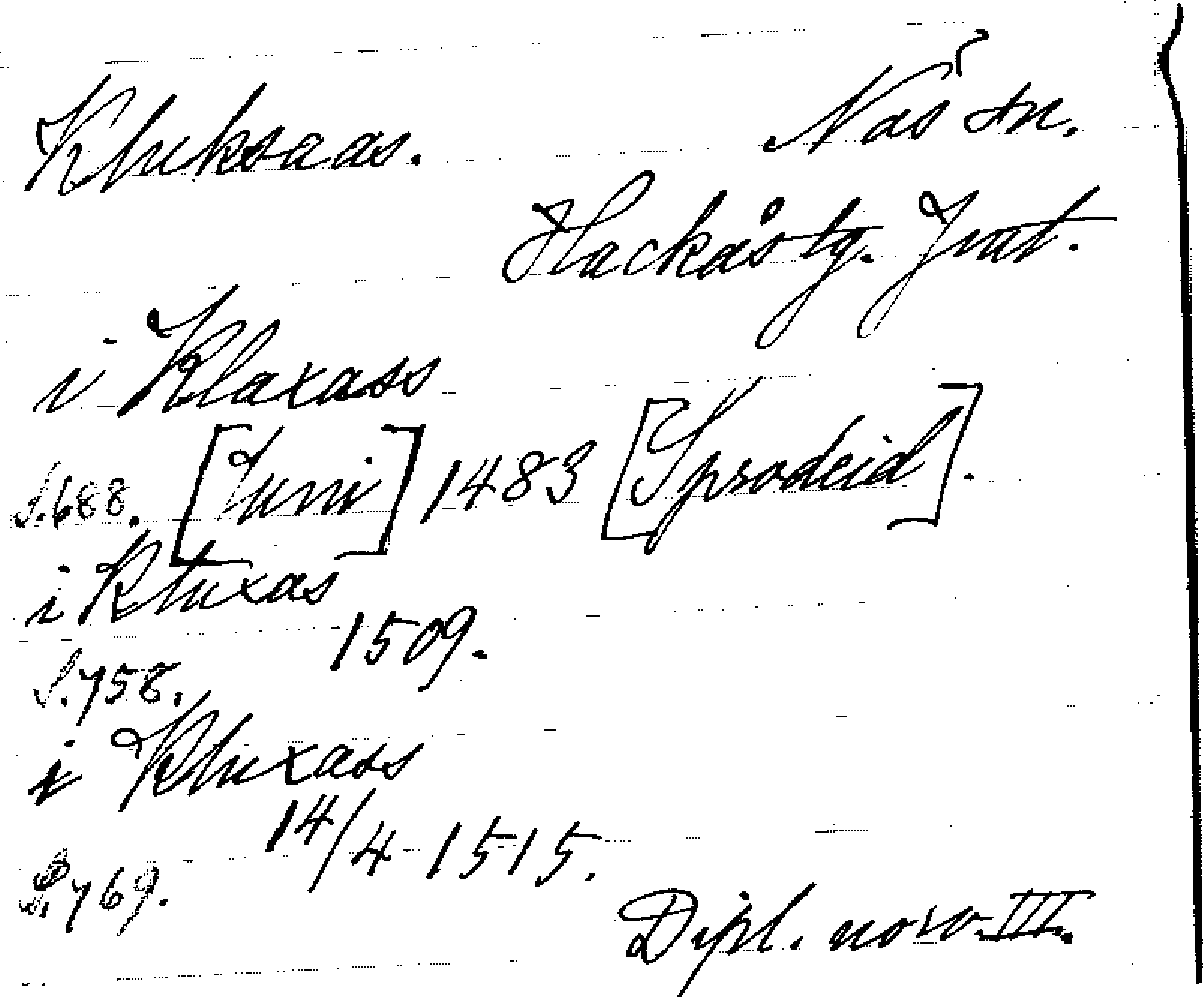 Kluksaas. Näs sn.
Hackås tg. Jmt.
i Klaxass
S.688. [Juni] 1483 [Sprodeid].
i Kluxas
1509.
S.758.
i Kluxass
14/4 1515.
S.769.
Dipl. norv. III.